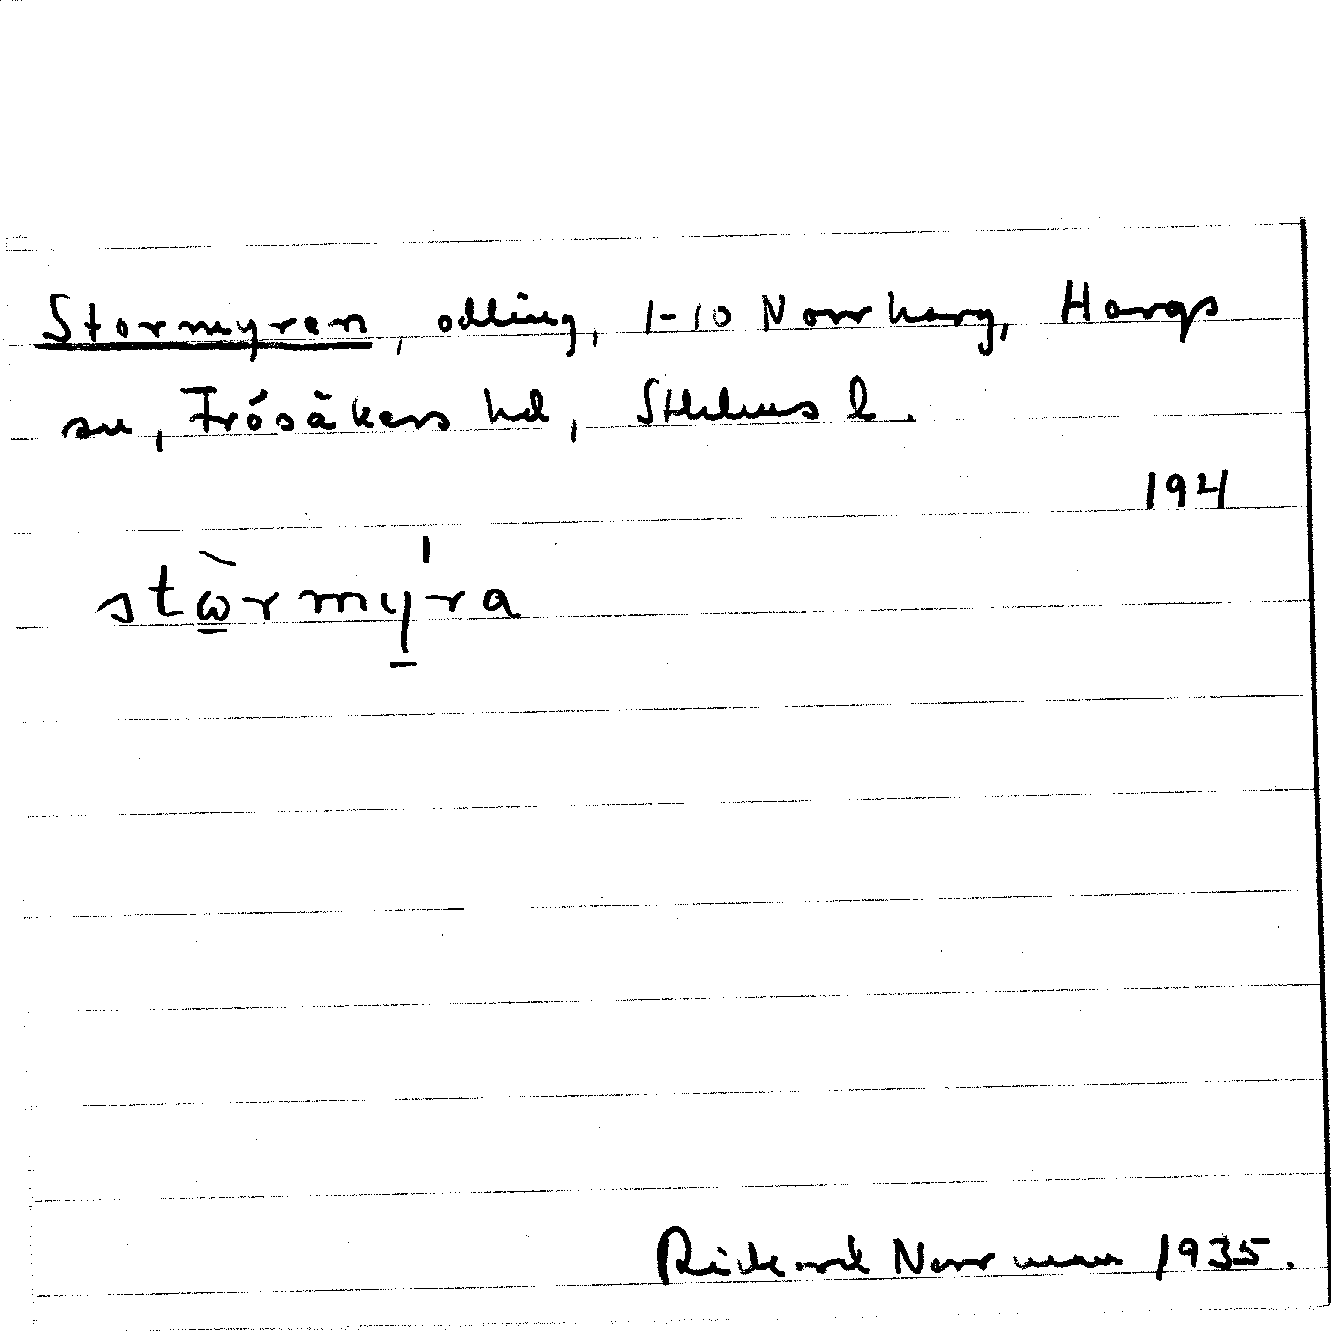 Stormyren, odling, 1-10 Norrharg, Hargs
sn, Frösåkers hd, Sthlms l.
194
stὼ̲rmy̲̍ra
Rickard Norrman 1935.